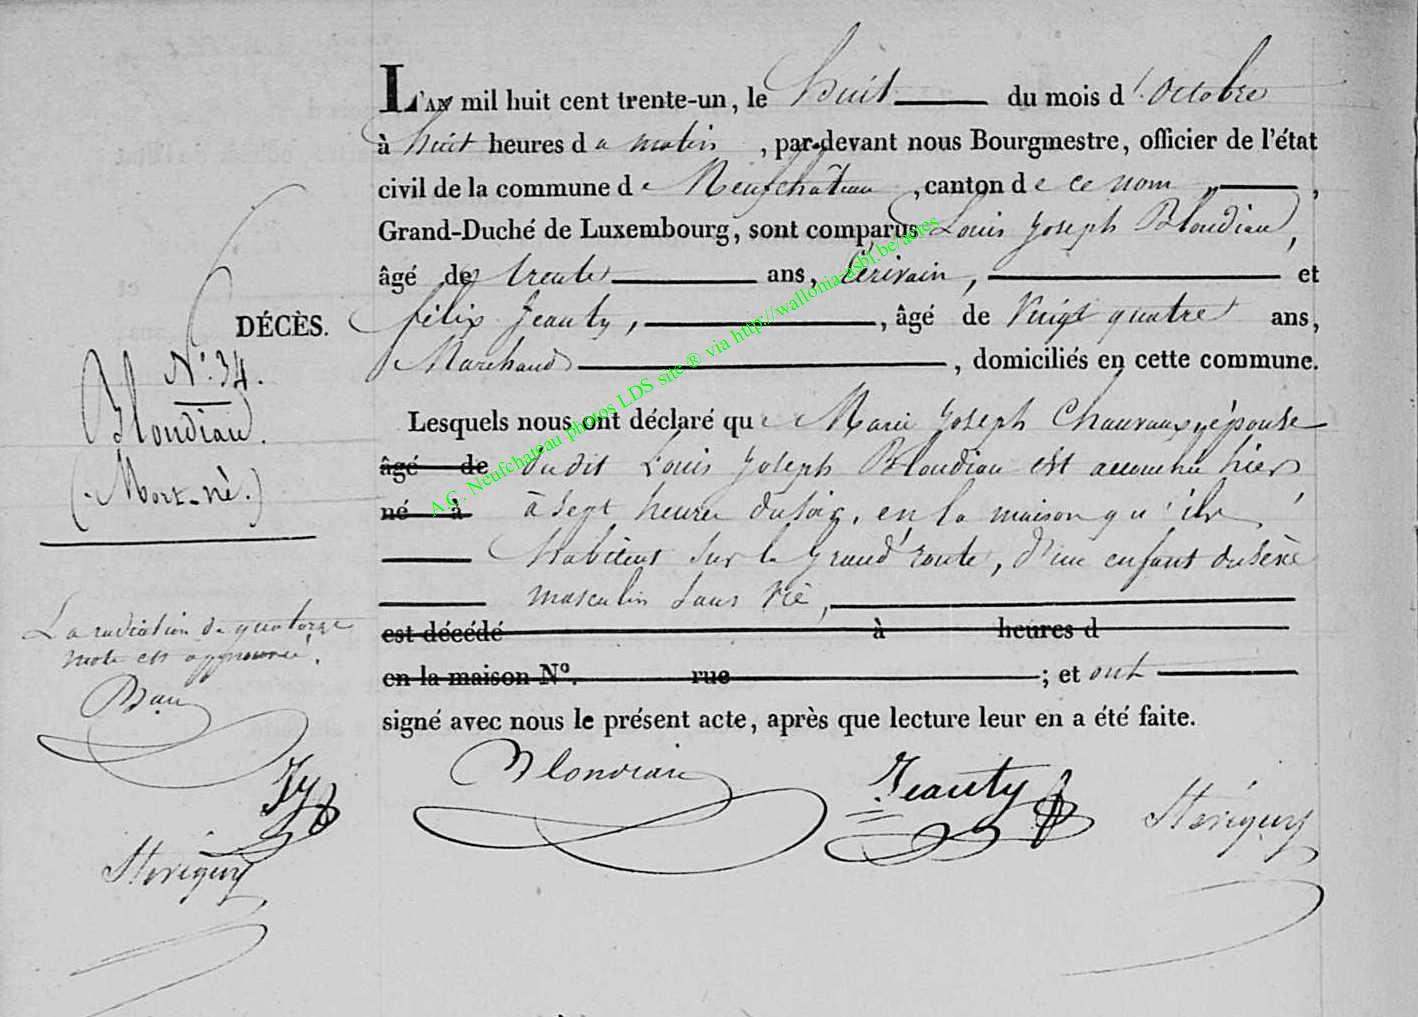 L'AN mil huit cent trente-un, le huit du mois d'Octobre
à huit heures du matin, par-devant nous Bourgmestre, officier de l'état
civil de la commune de Neufchâteau, canton de ce nom,
Grand-Duché de Luxembourg, sont comparus Louis Joseph Blondiau,
âgé de trente ans, Ecrivain, et
félix Jeanty, âgé de Vingt quatre ans,
Marchand, domiciliés en cette commune.
Lesquels nous ont déclaré que Marie Joseph Chauvaux, épouse
âgé de dudit Louis Joseph Blondiau est accouchée hier
né à à Sept heures du soir, en la maison qu'ils
habitent sur la Grand'route, d'un enfant du sexe
masculin sans vie,
est décédé à heures d
en la maison N°. rue ; et ont
signé avec nous le présent acte, après que lecture leur en a été faite.
Blondiau Jeanty
DÉCÈS.
N°. 34.
Blondiau.
(Mort-né.)
La radiation de quatorze
mots est approuvée.
Bau
Jy
A.C. Neufchateau photos LDS site ® via http://wallonia-asbl.be/actes